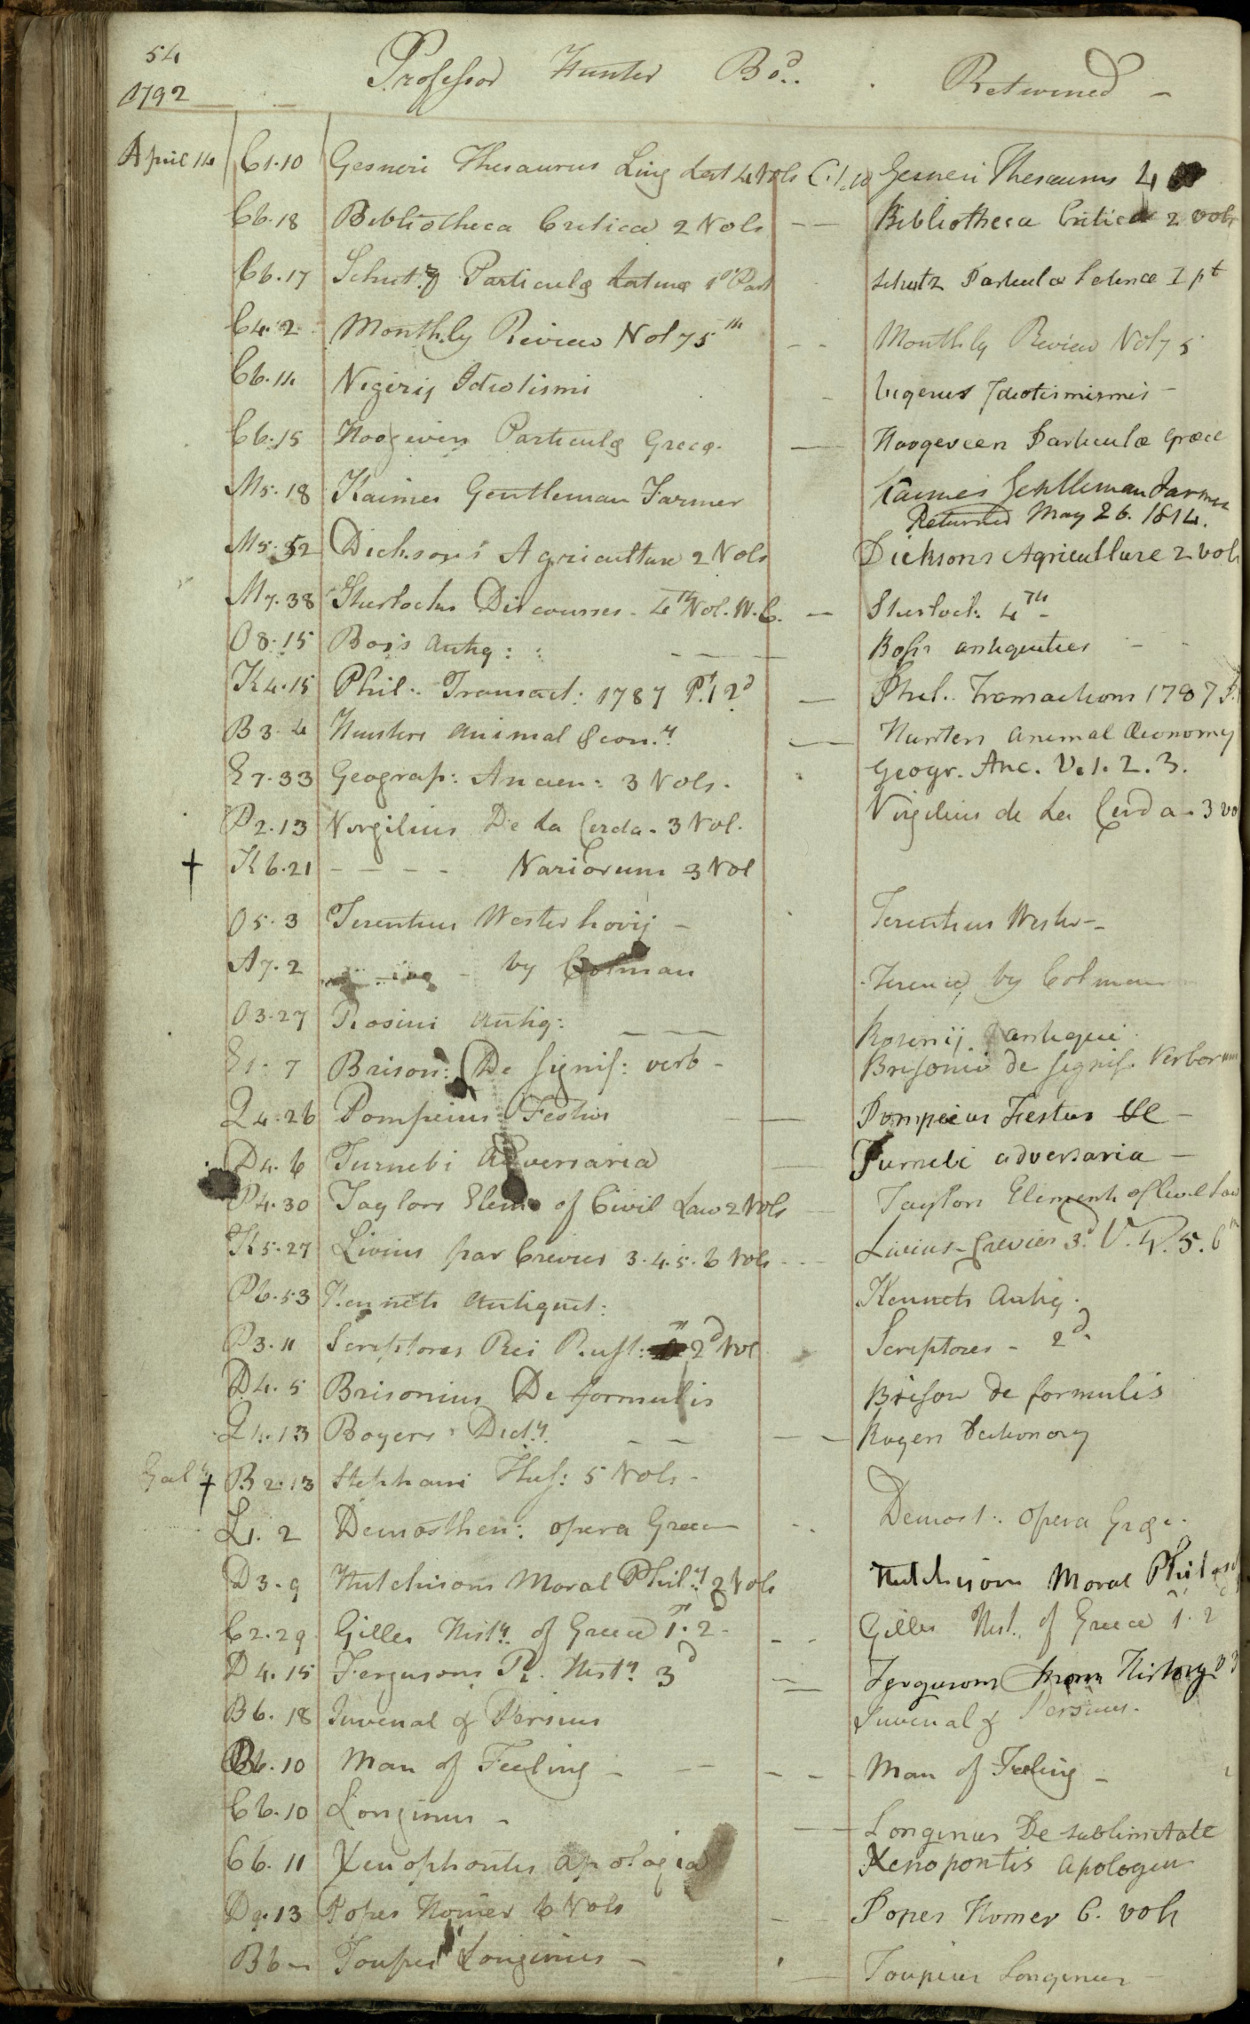 54
1792
Professor Hunter Bo.d. Returned -
April 14 C1.10 Gesneri Thesaurus Ling Lat 4 Vols C.1.10 Gesneri Thesaurus 4
C6.18 Bibliotheca Critica 2 Vols -- Bibliotheca Critica 2 vols
C6.17 Schutz Particulæ Latinæ 1st Part Schutz Particulæ Latinæ I pt
C4.2 Monthly Review Vol 75th -- Monthly Review Vol 75
C6.14 Vigerij Idiotismi - Vigerus Idiotismismis -
C6.15 Hoogeveen Particulæ Græcæ. - Hoogeveen Particulæ Græcæ
M5.18 Kaimes Gentleman Farmer Kaimes Gentleman Farmer
Returned May 26. 1814.
M5.52 Dicksons Agriculture 2 Vols Dicksons Agriculture 2 vols
M7.38 Sherlocks Discourses - 4th Vol. W.C. - Sherlock 4th -
O8.15 Boss Antiq: : ---- Boss antiquities - -
K4.15 Phil: Transact: 1787 P.1 2d - Phil. Transactions 1787 P.
B3.4 Hunters Animal Econ.y - Hunters animal Œconomy
E7.33 Geograp: Ancien: 3 Vols. - Geogr. Anc. V. 1. 2. 3.
P2.13 Virgilius De La Cerda. 3 Vol. Virgilius de La Cerda - 3 vo
+ K6.21 ---- Variorum 3 Vol
O5.3 Terentius Westerhovij - Terentius Wester--
A7.2 - by Colman Terence, by Colman
O3.27 Rosini Antiq: --- Rosinij antiqui.
E1.7 Brison: De Signif: verb - Brisonio de signif. Verborum
Q4.26 Pompeius Festus - Pompeius Festus -
D4.6 Turnebi Adversaria - Turnebi adversaria -
P4.30 Taylors Elem. of Civil Law 2 Vols - Taylors Elements of Civil Law
K5.27 Livius par Crevier 3.4.5.6 Vols -- Livius Crevier 3d. V. 4. 5. 6th
P6.53 Kennets Antiquit: Kennets Antiq.
P3.11 Scriptores Rei Rust: 2d Vol Scriptores - 2d.
D4.5 Brisonius De formulis Brison de formulis
Q4.13 Boyers Dict.y -- -- Boyers Dictionary
+ B2.13 Stephani Thes: 5 Vols -
L1.2 Demosthen: opera Græce -- Demost: opera Græc.
D3.9 Hutchisons Moral Phil:y 2 Vols Hutchison Moral Philosop
C2.29 Gillies Hist.y of Greece 1st. 2d -- Gillies Hist. of Greece 1. 2d
D4.15 Fergusons R. Hist.y 3d -- Fergusons Rom History V 3
B6.18 Juvenal & Persius Juvenal & Persius.
B6.10 Man of Feeling - -- -- Man of Feeling -
C6.10 Longinus - - Longinus De sublimitate
C6.11 Xenophontis Apologia Xenopontis Apologeia
D9.13 Popes Homer 6 Vols -- Popes Homer 6. vols
B6- Toupii Longinus - - Toupius Longinus -